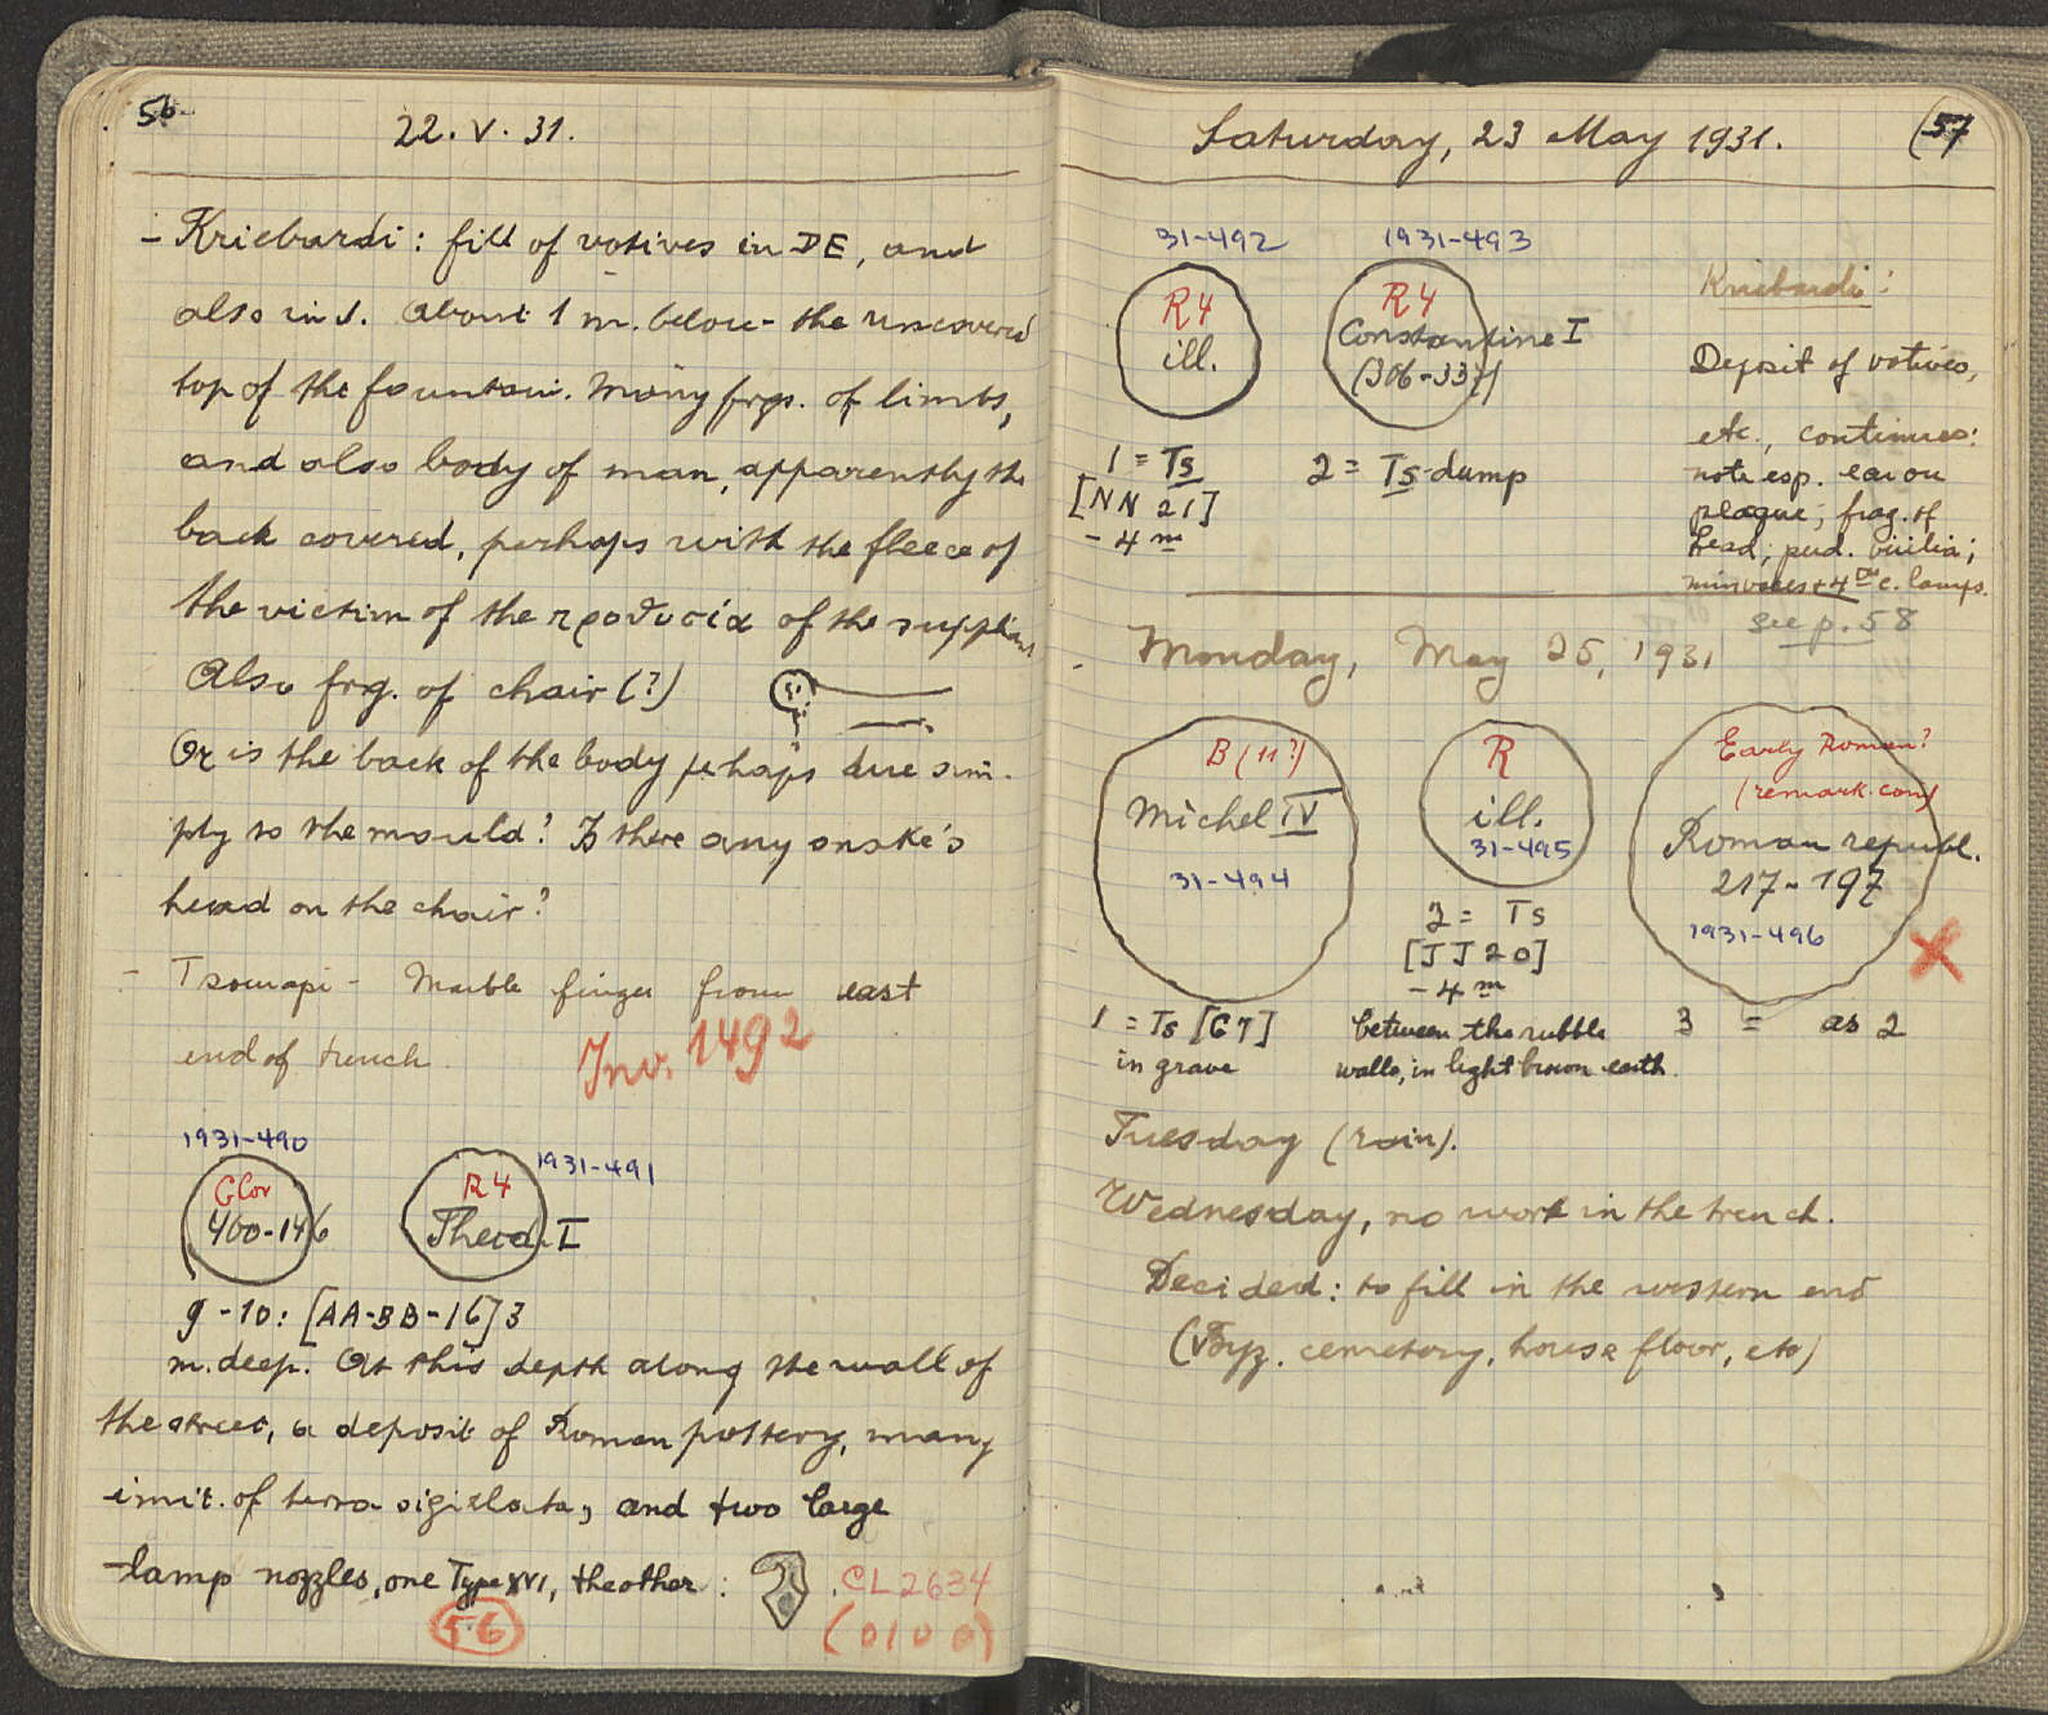 56
22. V. 31.
- Kriebardi: fill of votives in DE, and
also in S. About 1 m. below the uncovered
top of the fountain. Many frgs. of limbs,
and also body of man, apparently the
back covered, perhaps with the fleece of
the victim of the προθυσία of the suppliant
Also frg. of chair (?)
Or is the back of the body perhaps due sim-
ply to the mould? Is there any snake's
head on the chair?
- Tsourapi - Marble finger from east
end of trench.
Inv. 1492
1931-490
1931-491
GCor
400-146
R4
Theod. I
9-10: [AA-BB-16] 3
m. deep. At this depth along the wall of
the street, a deposit of Roman pottery, many
imit. of terra sigillata, and two large
lamp nozzles, one Type XVI, the other:
CL2634
56
Saturday, 23 May 1931.
57
31-492
1931-493
R4
ill.
R4
Constantine I
(306-337)
1 = Ts
[NN 21]
- 4 m
2 = Ts-dump
Kriebardi:
Deposit of votives,
etc., continues:
note esp. ear on
plaque; frag. of
head; pud. virilia;
min vases + 4th c. lamps.
see p. 58
Monday, May 25, 1931
B (11?)
Michel IV
31-494
R
ill.
31-495
Early Roman?
(remark. con)
Roman republ.
217-197
1931-496
X
1 = Ts [G7]
in grave
2 = Ts
[JJ 20]
- 4 m
between the rubble
walls, in light brown earth.
3 = as 2
Tuesday (rain).
Wednesday, no work in the trench.
Decided: to fill in the western end
(Byz. cemetery, house floor, etc)